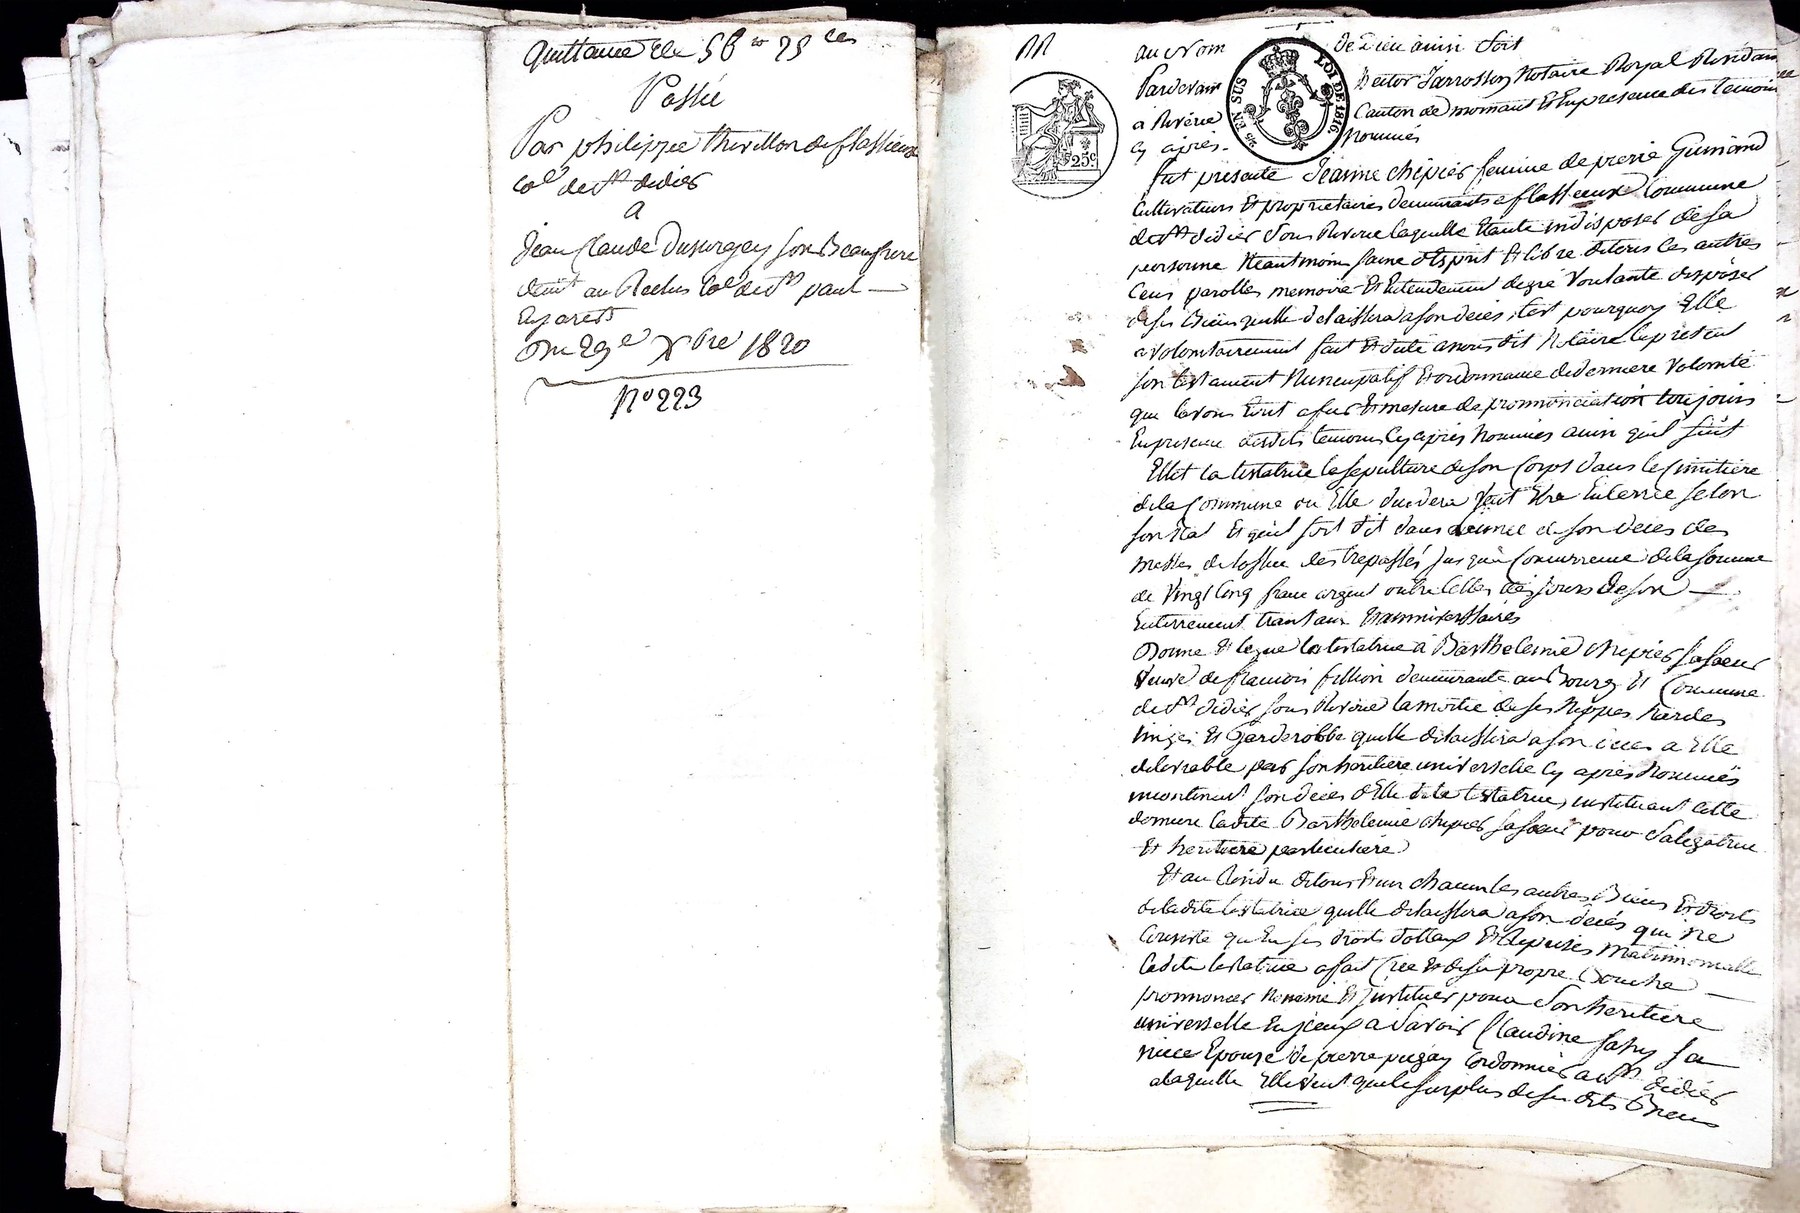 quittance de 56 fr 25 ces
Passé
Par philippe thivillon de flassieux
col de St didier
A
Jean Claude Dusurgey son Beaufrere
demt au Rochu col de St paul
En jarest
Du 29e Xbre 1820
No 223
M
au Nom de Dieu ainsi soit
Pardevant hector Jarrosson Notaire Royal Residant
a Riverie Canton de mornant Et En presence des temoins
cy après Nommés
EN SUS
LOI DE 1816.
25c
fut presente Jeanne chipier femme de pierre Guinand
Cultivateurs Et proprietaires demeurants a flassieux Commune
de St didier sous Riverie laquelle Etante indisposée de sa
personne Neantmoin saine d'Esprit Et libre de tous ces autres
Cens parolles memoire Et Entendement degré Voulante disposer
de ses Biens quelle delaissera a son deces, c'est pourquoy Elle
a Volontairement fait Et dicté a nous dit Notaire le present
son testament Nuncupatif Et ordonnance de derniere Volonté
que lavons Ecrit a fur Et mesure de prononciation toujours
En presence desdits temoins Cy après Nommés ainsi quil suit
Ellit la testatrice la sepulture de son Corps dans le Cimitiere
de la Commune ou Elle decedera Veut Etre Enterrée selon
son Etat Et quil soit dit dans l'année de son deces des
Messes de loffice des trepassés jusqu'a Concurrence de la somme
de Vingt Cinq franc argent outre Celles des jours de son
Enterrement trantain Et anniverssaires
Donne Et legue la testatrice à Barthelemie chipier sa soeur
Veuve de francois fillion demeurante au Bourg Et Commune
de St didier sous Riverie la moitié de ses Nippes hardes
linges Et Garderobbe quelle delaissera a son deces a Elle
delivrable par son heritiere universelle Cy après Nommées
incontinent son deces d'Elle dite testatrice, instituant Cette
derniere ladite Barthelemie chipier sa soeur pour Sa legatrice
Et heritiere particuliere
Et au Residu de tous Et un chacun les autres Biens Et droits
de ladite testatrice quelle delaissera a son deces qui ne
Consiste qu'En ses droits dottaux Et Reprises Matrimonialle
Ladite testatrice a fait Crée Et de sa propre Bouche
prononcer Nommé Et instituer pour Son heritiere
universelle En seul a Savoir Claudine faby sa
niece Epouse de pierre pugay Cordonnier a St didier
a laquelle Elle Veut que le surplus de ses dits Biens